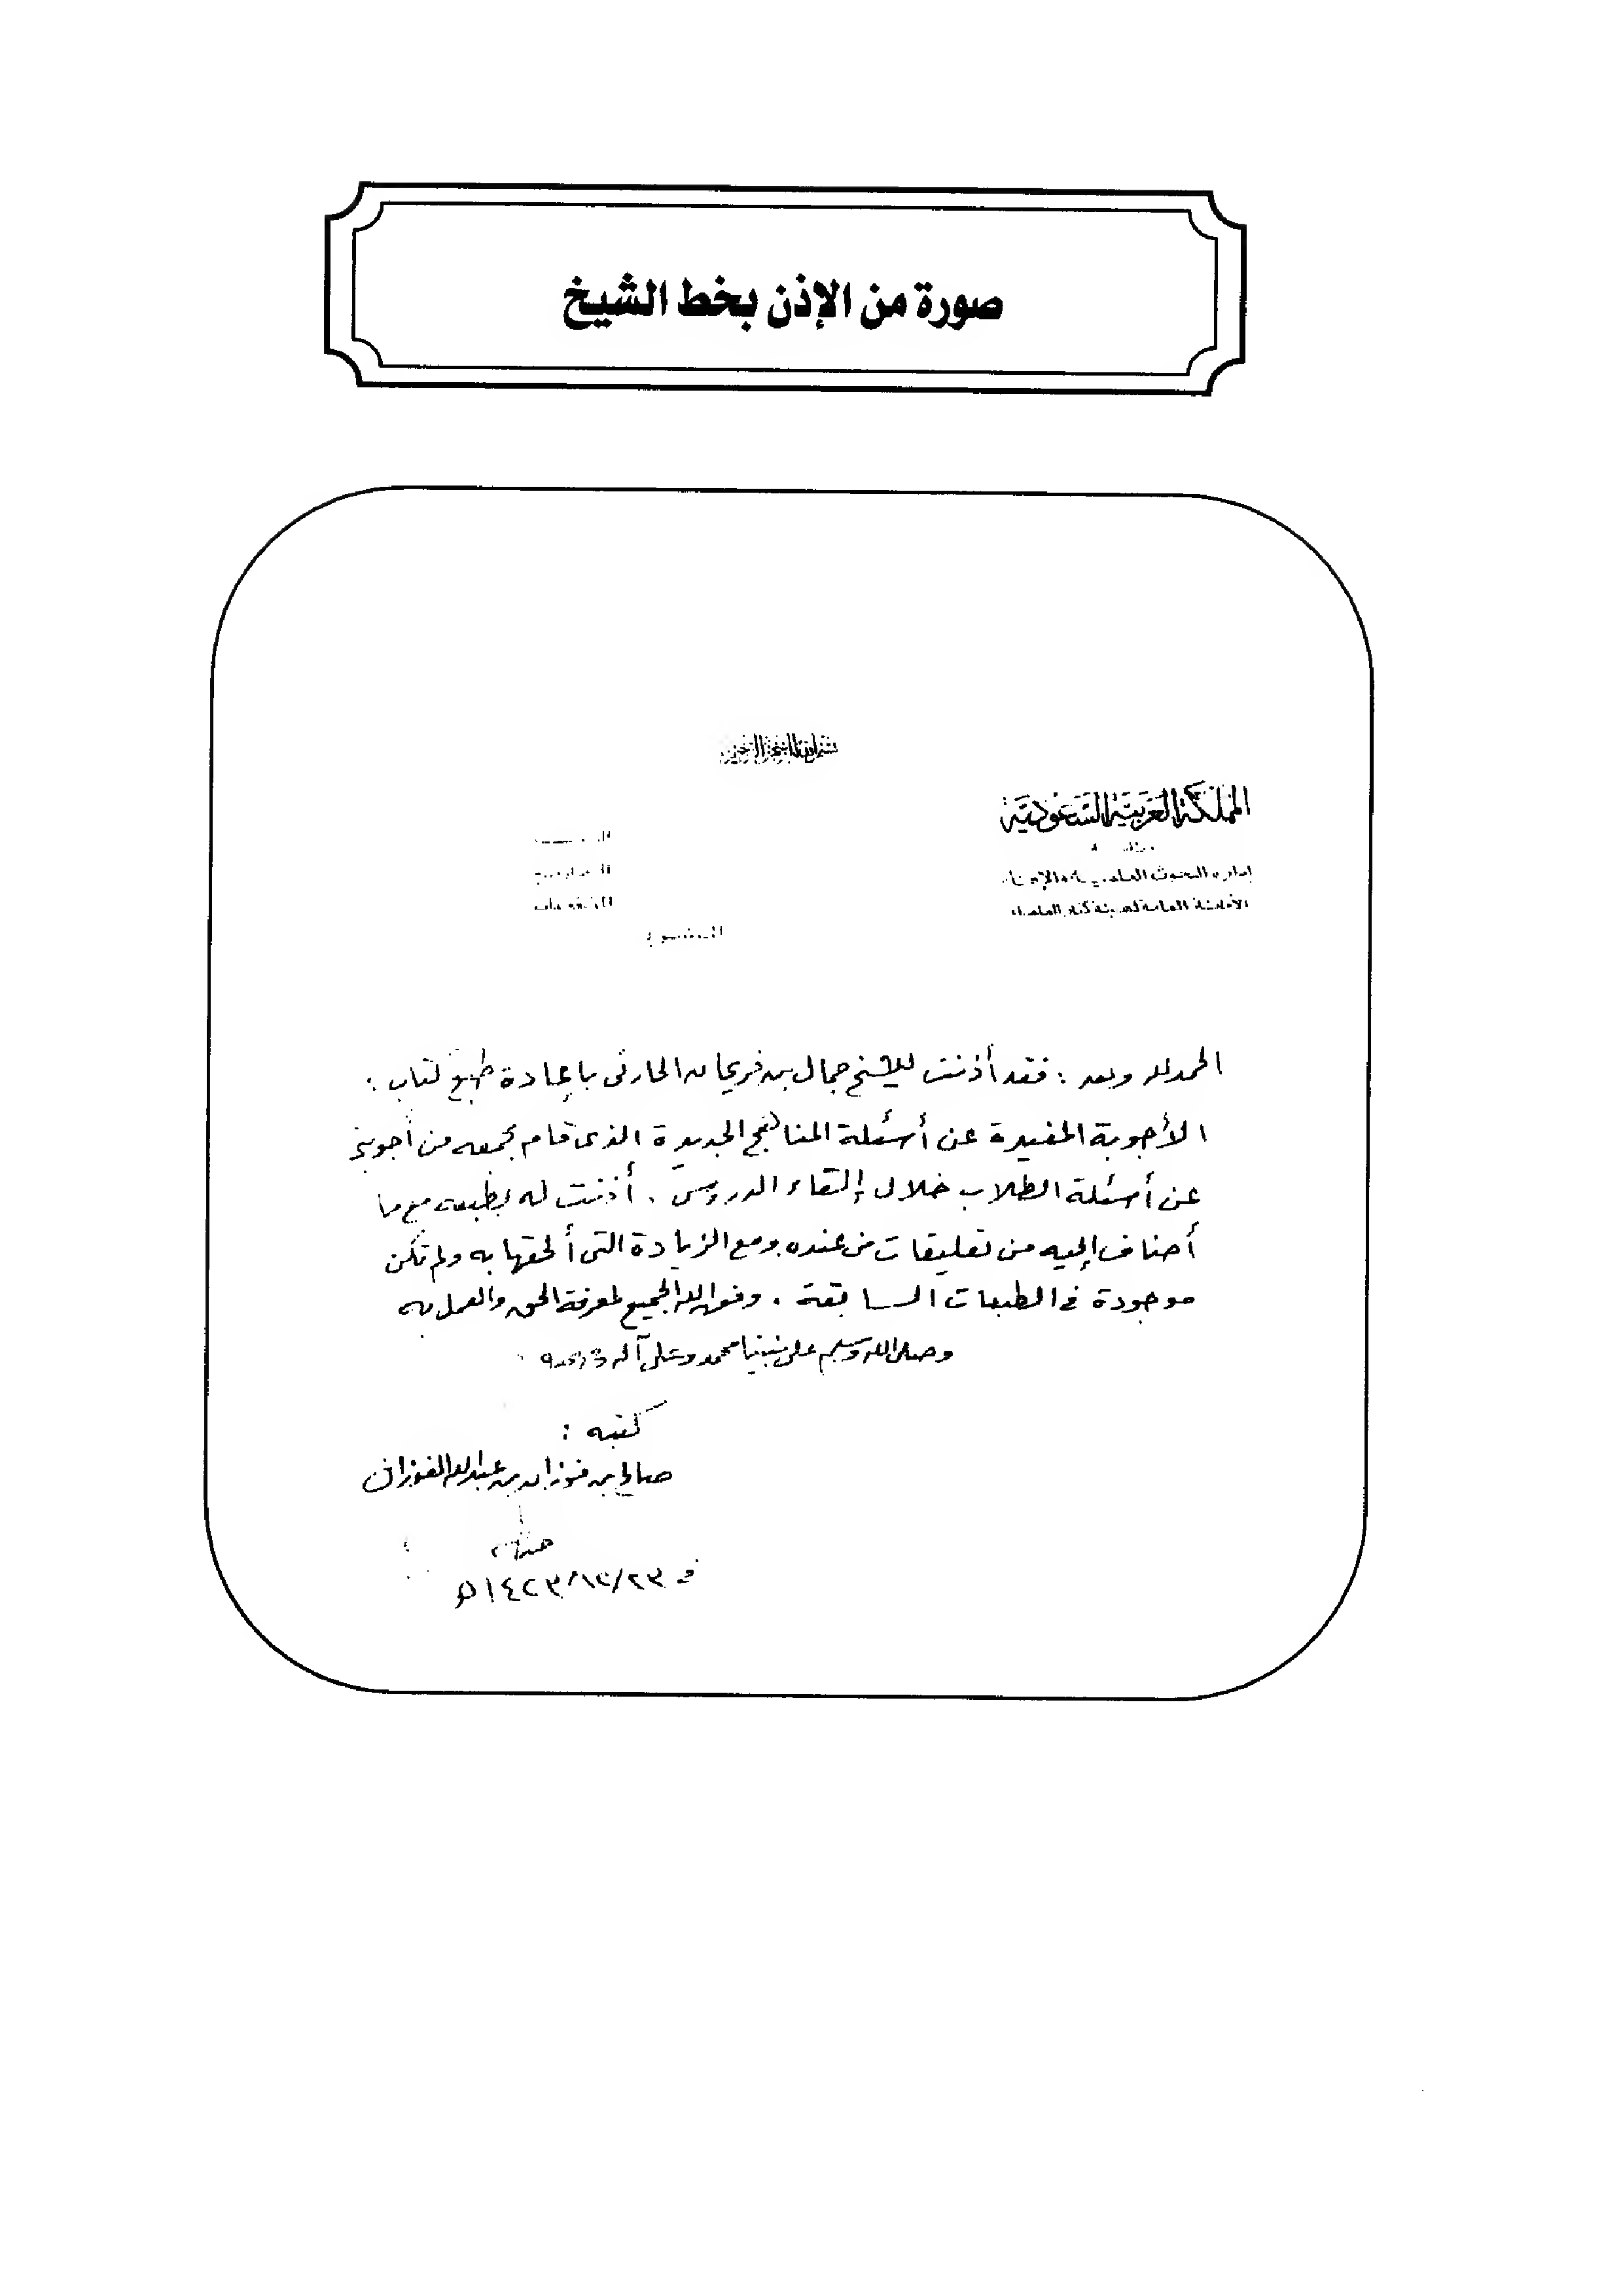 صورة من الإذن بخط الشيخ
بسم الله الرحمن الرحيم
المملكة العربية السعودية
إدارة البحوث العلمية والإفتاء
الأمانة العامة لهيئة كبار العلماء
الرقم
التاريخ
المرفقات
الموضوع
الحمد لله وبعد : فقد أذنت للشيخ جمال بن فريحان الحارثي بإعادة طبع كتاب :
الأجوبة المفيدة عن أسئلة المناهج الجديدة الذي قام بجمعه من أجوبتي
عن أسئلة الطلاب خلال إلقاء الدروس . أذنت له بطبعه مع ما
أضاف إليه من تعليقات من عنده ومع الزيادة التي ألحقها به ولم تكن
موجودة في الطبعات السابقة . وفق الله الجميع لمعرفة الحق والعمل به
وصلى الله وسلم على نبينا محمد وعلى آله وصحبه
كتبه :
صالح بن فوزان بن عبدالله الفوزان
في ٢٣/١٢/١٤٢٣هـ